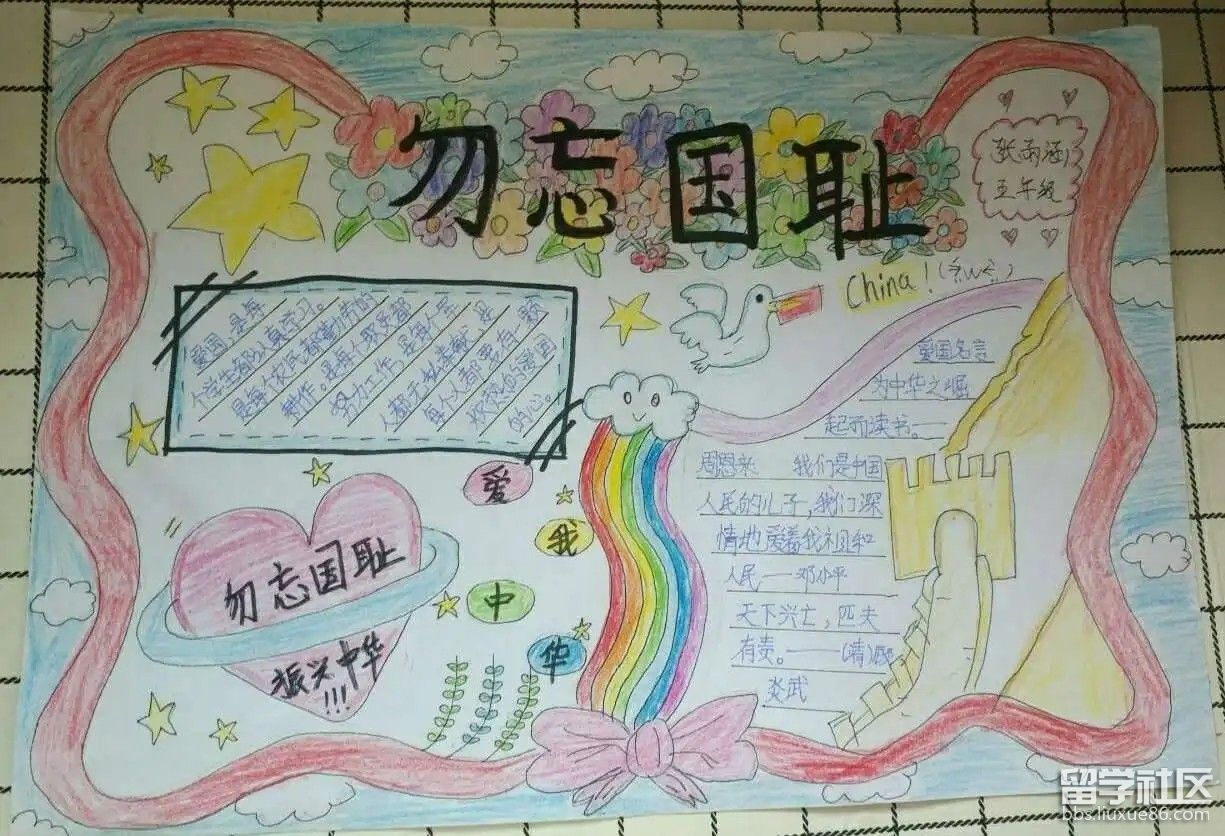 勿忘国耻
张雨涵
五年级
China!
爱国，是每
个学生都认真学习。
是每个农民都勤劳的
耕作。是每个职员都
努力工作，是每个军
人都无私奉献，是
每个人都要有一颗
炽热的爱国
的心。
爱国名言
为中华之崛
起而读书。——
周恩来 我们是中国
人民的儿子，我们深
情地爱着我祖和
人民——邓小平
天下兴亡，匹夫
有责。——(清)顾
炎武
爱
我
中
华
勿忘国耻
振兴中华
!!!
留学社区
bbs.liuxue86.com